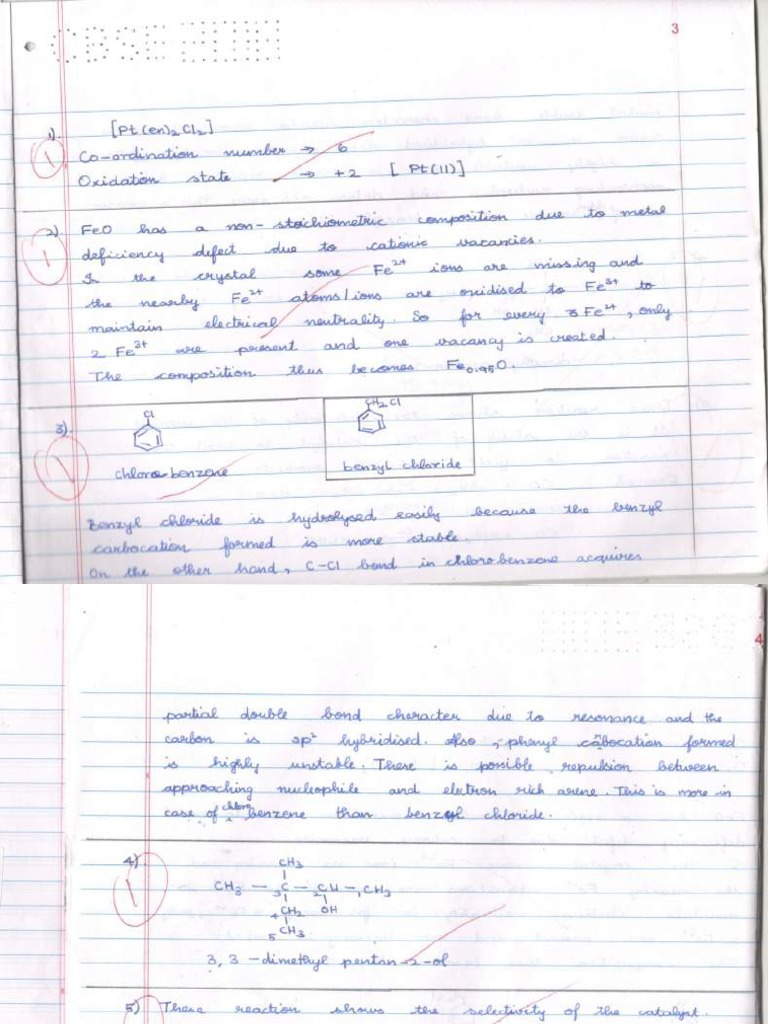 CBSE
3
1). [Pt(en)2Cl2]
1
Co-ordination number → 6
Oxidation state → +2 [Pt(II)]
2). FeO has a non-stoichiometric composition due to metal
1
deficiency defect due to cationic vacancies.
In the crystal some Fe2+ ions are missing and
the nearby Fe2+ atoms/ions are oxidised to Fe3+ to
maintain electrical neutrality. So for every 3Fe2+, only
2 Fe3+ are present and one vacancy is created.
The composition thus becomes Fe0.95O.
3). Cl
CH2Cl
1
chlorobenzene
benzyl chloride
Benzyl chloride is hydrolysed easily because the benzyl
carbocation formed is more stable.
On the other hand, C-Cl bond in chlorobenzene acquires
4
partial double bond character due to resonance and the
carbon is sp2 hybridised. Also, phenyl cabocation formed
is highly unstable. There is possible repulsion between
approaching nucleophile and electron rich arene. This is more in
case of chloro benzene than benzyl chloride.
4) CH3
1
CH3 — 3C — 2CH — 1CH3
4CH2 OH
5CH3
3, 3 - dimethyl pentan-2-ol
5) These reaction shows the selectivity of the catalyst.